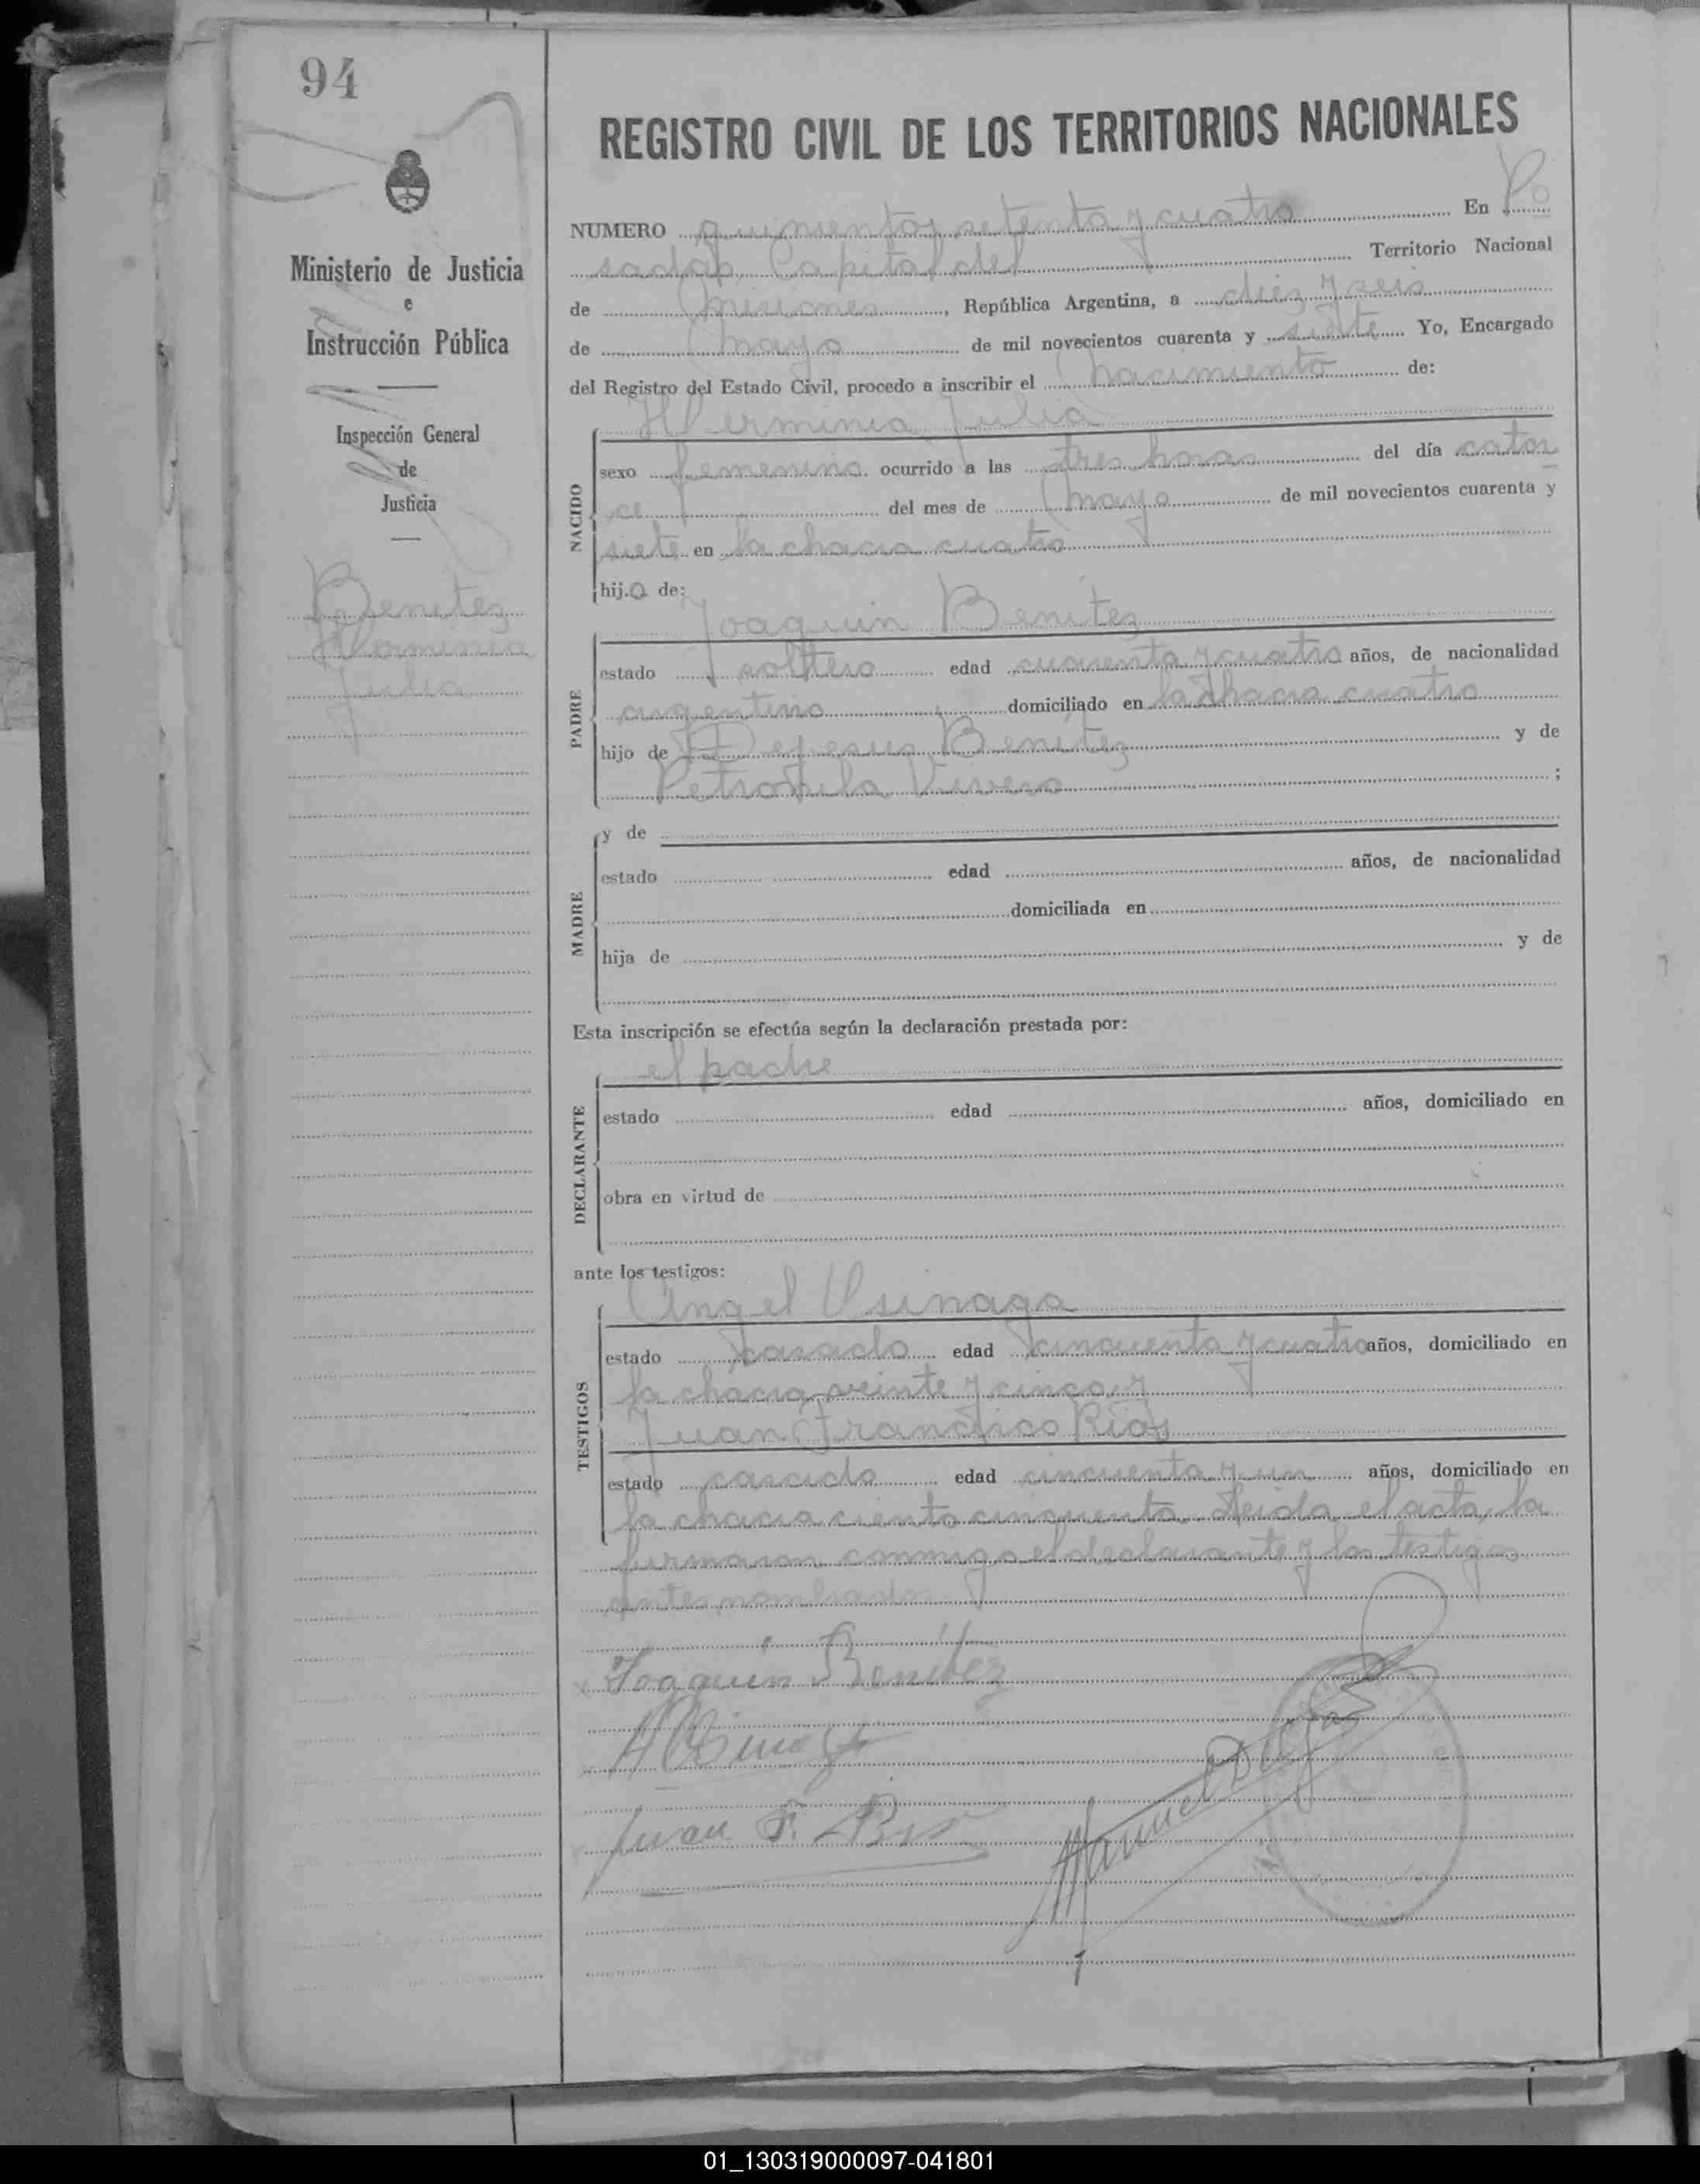 94
REGISTRO CIVIL DE LOS TERRITORIOS NACIONALES
Ministerio de Justicia
e
Instrucción Pública
Inspección General
de
Justicia
Benitez
Herminia
Julia
NUMERO quinientos setenta y cuatro En Po
sadas, Capital del Territorio Nacional
de Misiones, República Argentina, a diez y seis
de Mayo de mil novecientos cuarenta y siete Yo, Encargado
del Registro del Estado Civil, procedo a inscribir el nacimiento de:
Herminia Julia
NACIDO
sexo femenino ocurrido a las tres horas del día cator
ce del mes de Mayo de mil novecientos cuarenta y
siete en la chacra cuatro
hij.a de:
Joaquin Benítez
PADRE
estado soltero edad cuarenta y cuatro años, de nacionalidad
argentino domiciliado en la chacra cuatro
hijo de Dejesus Benítez y de
Petronila Vivero ;
MADRE
y de
estado edad años, de nacionalidad
domiciliada en
hija de y de
Esta inscripción se efectúa según la declaración prestada por:
el padre
DECLARANTE
estado edad años, domiciliado en
obra en virtud de
ante los testigos:
Angel Usinaga
TESTIGOS
estado casado edad cincuenta y cuatro años, domiciliado en
la chacra veinte y cinco, y
Juan Francisco Rios
estado casado edad cincuenta y un años, domiciliado en
la chacra ciento cincuenta. Leida el acta, la
firmaron conmigo el declarante y los testigos
antes nombrados
Joaquin Benitez
Juan F. Rios
Manuel
01_130319000097-041801